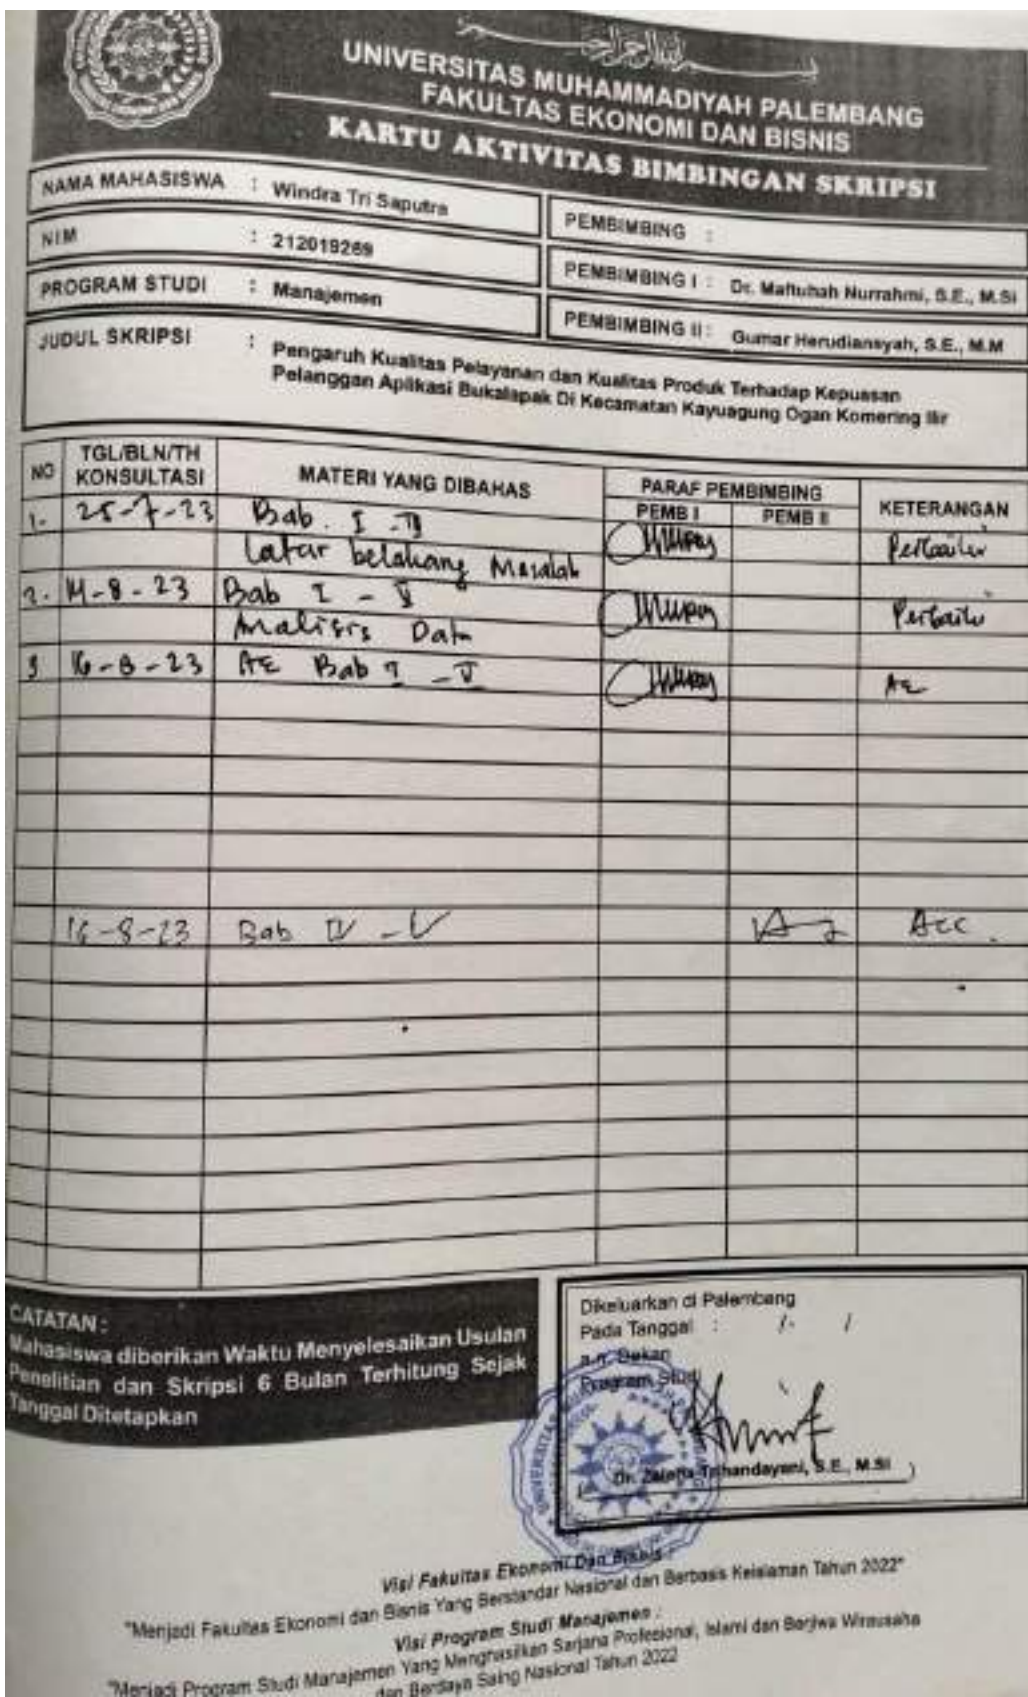 UNIVERSITAS MUHAMMADIYAH PALEMBANG
FAKULTAS EKONOMI DAN BISNIS
KARTU AKTIVITAS BIMBINGAN SKRIPSI
NAMA MAHASISWA : Windra Tri Saputra
PEMBIMBING :
NIM : 212019269
PEMBIMBING I : Dr. Maftuhah Nurrahmi, S.E., M.Si
PROGRAM STUDI : Manajemen
PEMBIMBING II : Gumar Herudiansyah, S.E., M.M
JUDUL SKRIPSI : Pengaruh Kualitas Pelayanan dan Kualitas Produk Terhadap Kepuasan
Pelanggan Aplikasi Bukalapak Di Kecamatan Kayuagung Ogan Komering Ilir
NO TGL/BLN/TH KONSULTASI MATERI YANG DIBAHAS PARAF PEMBIMBING KETERANGAN
PEMB I PEMB II
1. 25-7-23 Bab. I -
Latar belakang Masalah
2. 14-8-23 Bab I - V
Analisis Data
3 16-8-23 Bab I - V
16-8-23 Bab IV - V Acc.
CATATAN :
Mahasiswa diberikan Waktu Menyelesaikan Usulan
Penelitian dan Skripsi 6 Bulan Terhitung Sejak
Tanggal Ditetapkan
Dikeluarkan di Palembang
Pada Tanggal : / /
a.n. Dekan
Program Studi
Dr. Trihandayani, S.E., M.Si
Visi Fakultas Ekonomi Dan Bisnis :
"Menjadi Fakultas Ekonomi dan Bisnis Yang Berstandar Nasional dan Berbasis Keislaman Tahun 2022"
Visi Program Studi Manajemen :
"Menjadi Program Studi Manajemen Yang Menghasilkan Sarjana Profesional, Islami dan Berjiwa Wirausaha
dan Berdaya Saing Nasional Tahun 2022